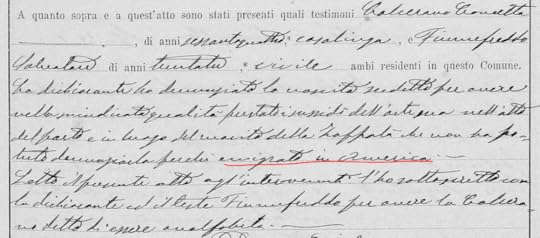 A quanto sopra e a quest'atto sono stati presenti quali testimoni Calcerano Concetta
, di anni sessantaquattro, casalinga, e Fiumefreddo
Salvatore di anni trentatre, civile ambi residenti in questo Comune.
La dichiarante ha denunziato la nascita suddetta per avere
nella suindicata qualità prestati i sussidi dell'arte sua nell'atto
del parto e in luogo del marito della Zappalà che non ha po-
tuto denunziarla perchè emigrato in America.
Letto il presente atto agl'intervenuti l'ho sottoscritto con
la dichiarante ed il teste Fiumefreddo per avere la Calcera-
no detto di essere analfabeta.